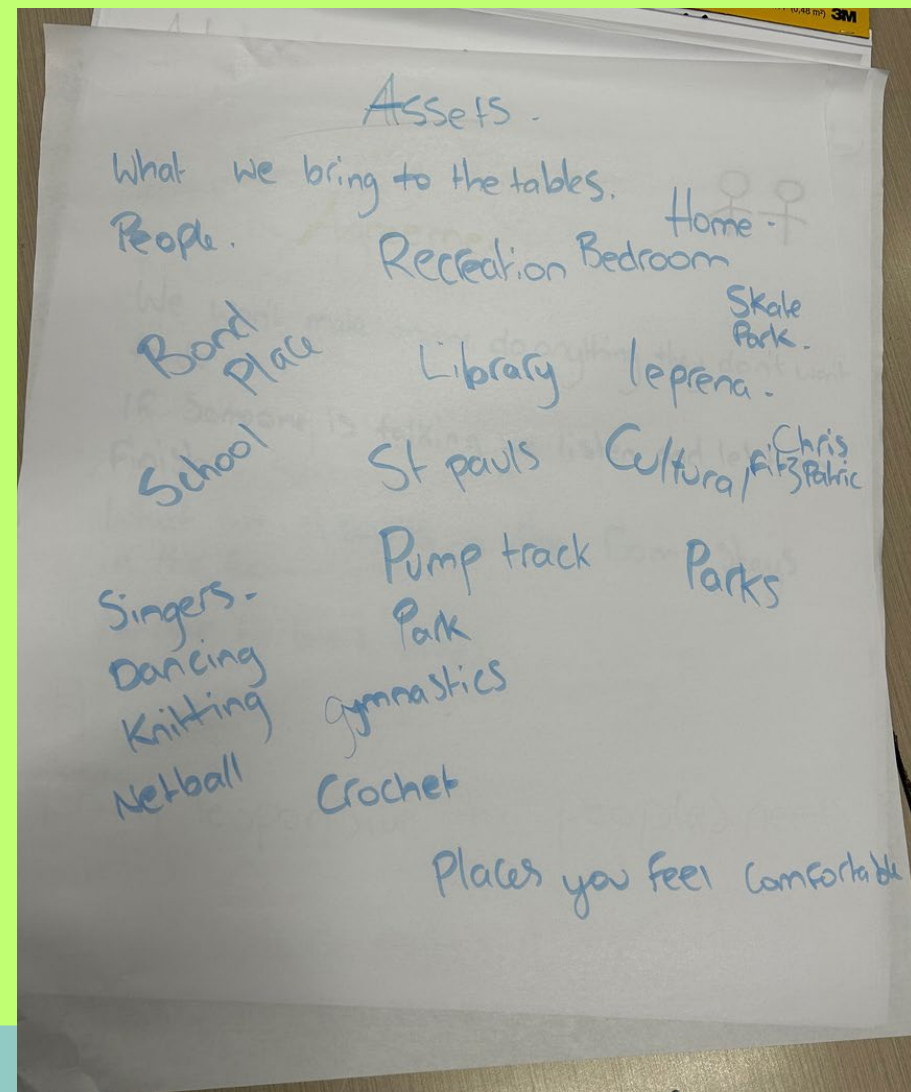 3M
Assets.
What we bring to the tables.
People.
Home.
Recreation Bedroom
Skate
Park.
Bond
Place
Library
leprena.
School
St pauls
Cultural
Chris
Fitzpatric
Pump track
Parks
Park
Singers.
Dancing
Knitting
gymnastics
Netball
Crochet
Places you feel comfortable